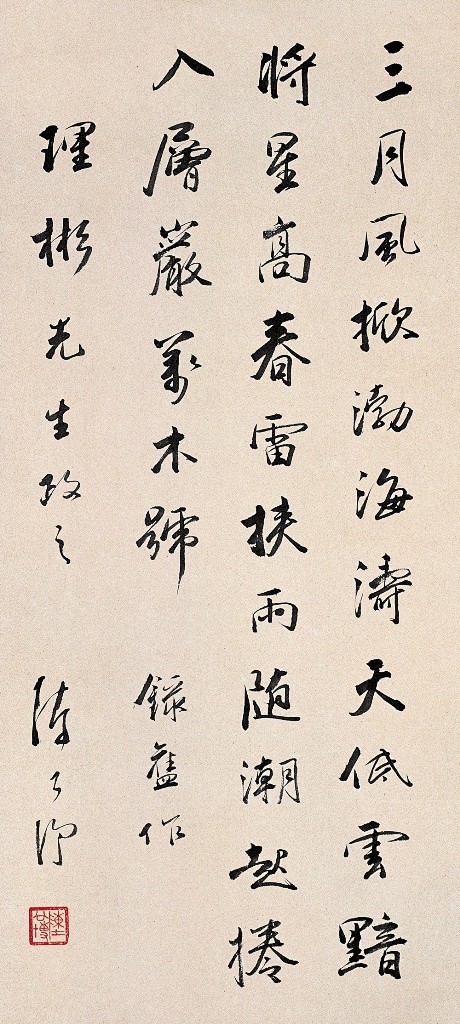 三月風掀渤海濤天低雲黯
將星高春雷挾雨随潮起捲
入層巖萬木號 錄舊作
理彬先生政之 陳公博
陳公博